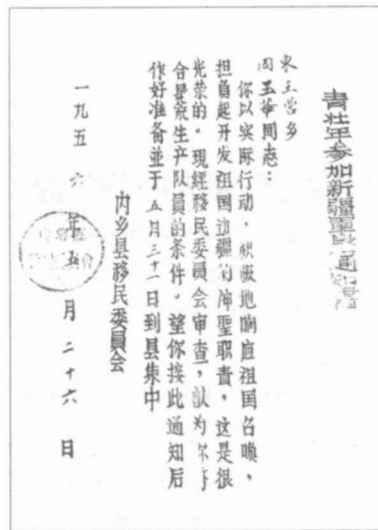 青壮年参加新疆垦荒通知書
米王营乡
周玉华同志：
你以实际行动，积极地响应祖国召唤，
担負起开发祖国边疆的神聖职責，这是很
光荣的。现經移民委員会审查，認为你符
合垦荒生产队員的条件。望你接此通知后
作好准备並于五月三十一日到县集中
内乡县移民委員会
一九五六年五月二十六日